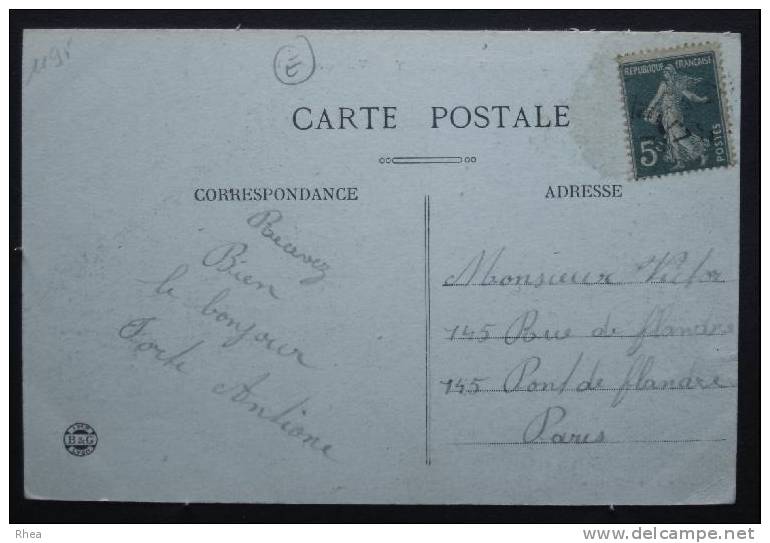 1195
É
CARTE POSTALE
REPUBLIQUE FRANÇAISE
5c
POSTES
CORRESPONDANCE
Recevez
Bien
le bonjour
Forte Antione
B & G
ADRESSE
Monsieur Victor
145 Rue de flandre
145 Pont de flandre
Paris
Rhea
http://www.delcampe.net